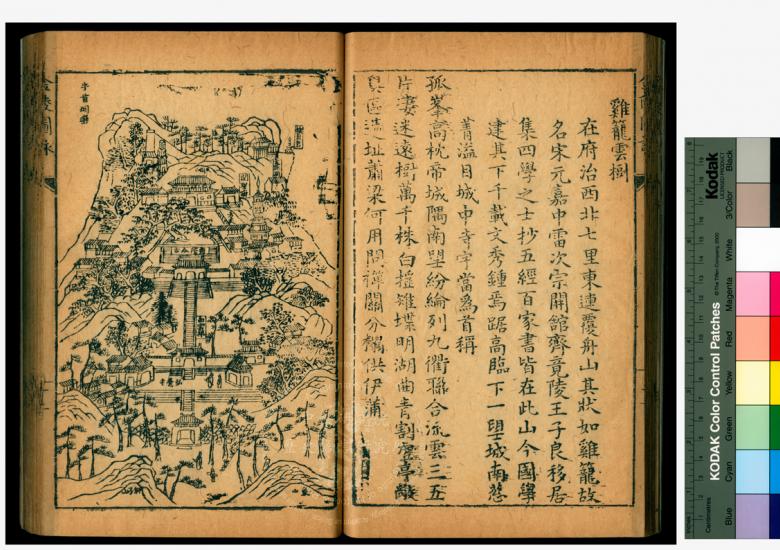 雞籠雲樹
在府治西北七里東連覆舟山其狀如雞籠故
名宋元嘉中雷次宗開舘齊竟陵王子良移居
集四學之士抄五經百家書皆在此山今國學
建其下千載文秀鍾焉踞高臨下一望城南葱
菁溢目城中寺宇當爲首稱
孤峯高枕帝城隅南望紛綸列九衢聯合流雲三五
片凄迷遠樹萬千株白摇雉堞明湖曲青割
遺址蕭梁何用問禪關分糯供伊蒲
Kodak
LICENSED PRODUCT
KODAK Color Control Patches
© The Tiffen Company, 2000
Blue
Cyan
Green
Yellow
Red
Magenta
White
3/Color
Black
Centimetres
Inches